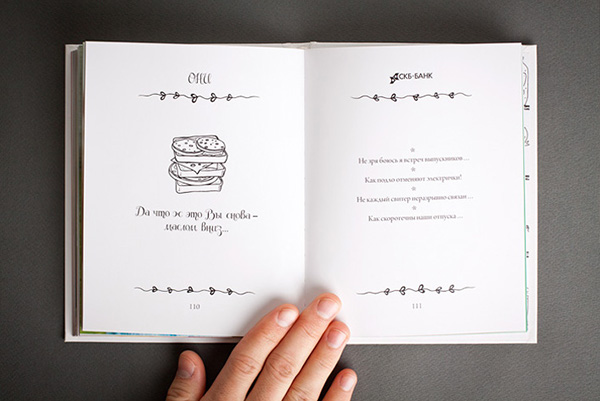 ОНИ
Да что ж это Вы снова –
маслом вниз...
110
СКБ-БАНК
Не зря боюсь я встреч выпускников ...
Как подло отменяют электрички!
Не каждый свитер неразрывно связан ...
Как скоротечны наши отпуска ...
111